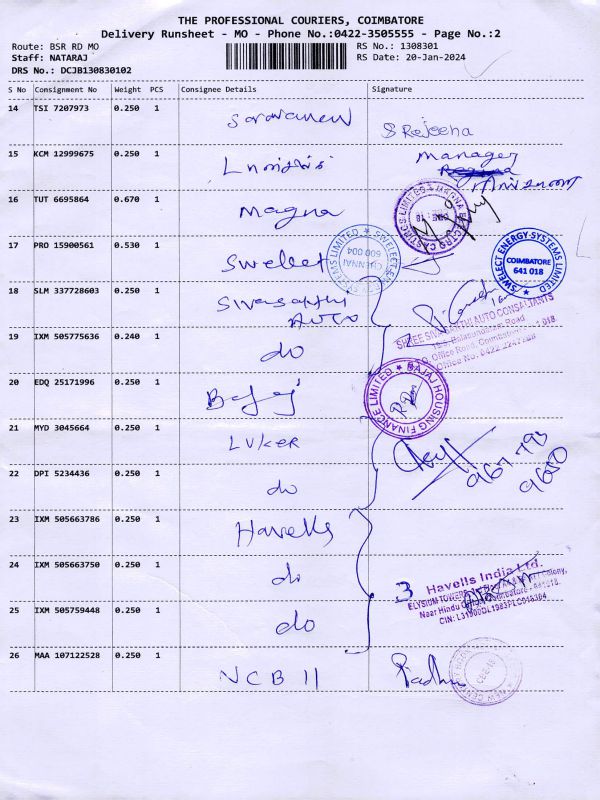 THE PROFESSIONAL COURIERS, COIMBATORE
Delivery Runsheet - MO - Phone No.:0422-3505555 - Page No.:2
Route: BSR RD MO
Staff: NATARAJ
DRS No.: DCJB130830102
RS No.: 1308301
RS Date: 20-Jan-2024
S No Consignment No Weight PCS Consignee Details Signature
14 TSI 7207973 0.250 1 Saravanan S Rejeena
15 KCM 12999675 0.250 1 Manager
16 TUT 6695864 0.670 1 Magna
17 PRO 15900561 0.530 1 Swelect
SWELECT ENERGY SYSTEMS LIMITED
COIMBATORE
641 018
CHENNAI
600 004
18 SLM 337728603 0.250 1 Swasakthi
Auto
SHREE SIVASAKTHI AUTO CONSULTANTS
19 IXM 505775636 0.240 1 do
20 EDQ 25171996 0.250 1 Bajaj
BAJAJ HOUSING FINANCE LIMITED
21 MYD 3045664 0.250 1 LVKER
967 793
9650
22 DPI 5234436 0.250 1 do
23 IXM 505663786 0.250 1 Havells
24 IXM 505663750 0.250 1 do
3 Havells India Ltd.
ELYSIUM TOWERS
CIN: L31900DL1983PLC016304
25 IXM 505759448 0.250 1 do
26 MAA 107122528 0.250 1 NCB 11 Radha